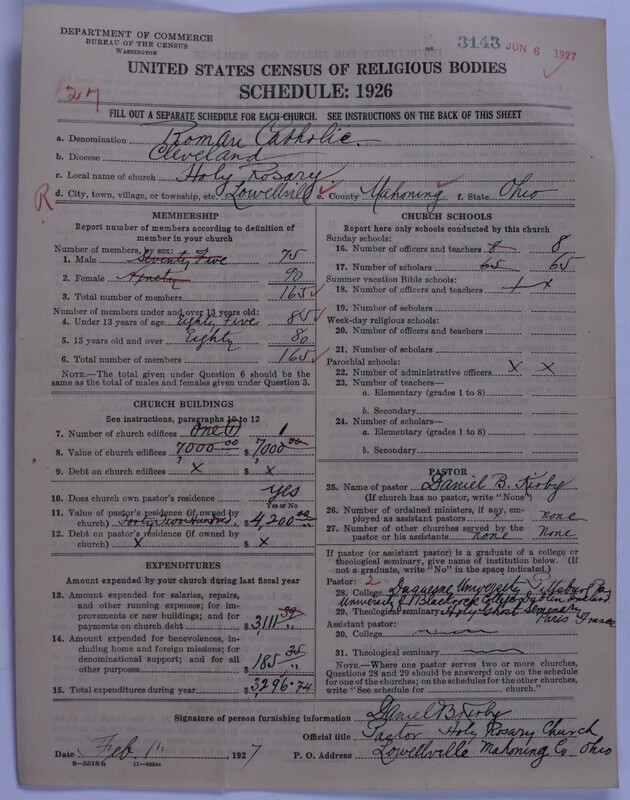 DEPARTMENT OF COMMERCE
BUREAU OF THE CENSUS
WASHINGTON
3143 JUN 6 1927
UNITED STATES CENSUS OF RELIGIOUS BODIES
27
SCHEDULE: 1926
FILL OUT A SEPARATE SCHEDULE FOR EACH CHURCH. SEE INSTRUCTIONS ON THE BACK OF THIS SHEET
a. Denomination Roman Catholic
b. Diocese Cleveland
c. Local name of church Holy Rosary
R d. City, town, village, or township, etc. Lowellville e. County Mahoning f. State Ohio
MEMBERSHIP
Report number of members according to definition of
member in your church
Number of members, by sex:
1. Male Seventy Five 75
2. Female Ninety 90
3. Total number of members 165
Number of members under and over 13 years old:
4. Under 13 years of age Eighty Five 85
5. 13 years old and over Eighty 80
6. Total number of members 165
NOTE.—The total given under Question 6 should be
same as the total of males and females given under Question 3.
CHURCH BUILDINGS
See instructions, paragraphs 10 to 12
7. Number of church edifices One (1) 1
8. Value of church edifices 7000 00 $ 7,000 00
9. Debt on church edifices X $ X
10. Does church own pastor's residence Yes
Yes or No
11. Value of pastor's residence (if owned by
church) Forty Two Hundred $ 4,200 00
12. Debt on pastor's residence (if owned by
church) X $ X
EXPENDITURES
Amount expended by your church during last fiscal year
13. Amount expended for salaries, repairs,
and other running expenses; for im-
provements or new buildings; and for
payments on church debt $ 3,111 39
14. Amount expended for benevolences,
including home and foreign missions; for
denominational support; and for all
other purposes $ 185 35
15. Total expenditures during year $ 3,296.74
CHURCH SCHOOLS
Report here only schools conducted by this church
Sunday schools:
16. Number of officers and teachers 8 8
17. Number of scholars 65 65
Summer vacation Bible schools:
18. Number of officers and teachers X X
19. Number of scholars
Week-day religious schools:
20. Number of officers and teachers
21. Number of scholars
Parochial schools:
22. Number of administrative officers X X
23. Number of teachers—
a. Elementary (grades 1 to 8)
b. Secondary
24. Number of scholars—
a. Elementary (grades 1 to 8)
b. Secondary
PASTOR
25. Name of pastor Daniel B. Kirby
(If church has no pastor, write "None")
26. Number of ordained ministers, if any, em-
ployed as assistant pastors none
27. Number of other churches served by the
pastor or his assistants none None
If pastor (or assistant pastor) is a graduate of a college or
theological seminary, give name of institution below. (If
not a graduate, write "No" in the space indicated.)
Pastor: 2
28. College Duquesne University Pittsburg Pa
University Blackrock College Dublin Ireland
29. Theological seminary Holy Ghost Seminary
Paris France
Assistant pastor:
30. College
31. Theological seminary
NOTE.—Where one pastor serves two or more churches,
Questions 28 and 29 should be answered only on the schedule
for one of the churches; on the schedules for the other churches,
write "See schedule for church."
Signature of person furnishing information Daniel B Kirby
Official title Pastor Holy Rosary Church
Date Feb. 1, 1927 P. O. Address Lowellville Mahoning Co. Ohio